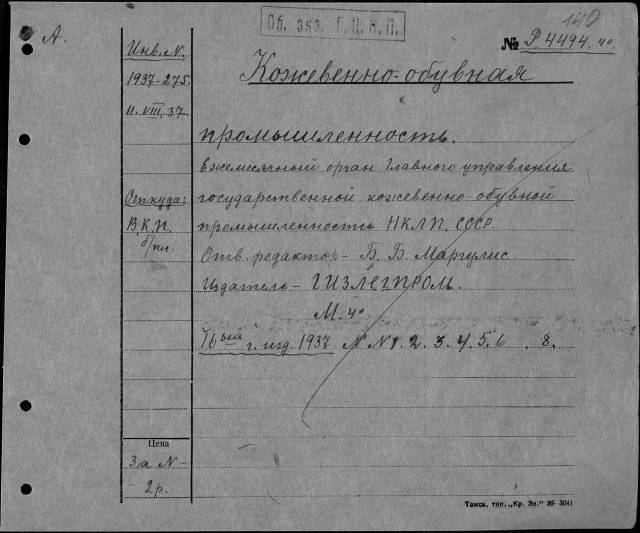 Об. экз. Г.Ц.К.П.
140
А.
№ Р.4494.40
Инв. N.
1937-275.
11.VIII.37.
Кожевенно-обувная
промышленность.
Ежемесячный орган Главного управления
Откуда:
государственной кожевенно-обувной
В.К.П.
промышленность НКЛП. СССР
б/пл.
Отв. редактор - Б. В. Маргулис
Издатель - ГИЗЛЕГПРОМ.
М. 4°
16ый г. изд. 1937 N N 1. 2. 3. 4. 5. 6 . 8.
Цена
За N -
- 2р.
Томск, тип. „Кр. Зн." 36- 3041